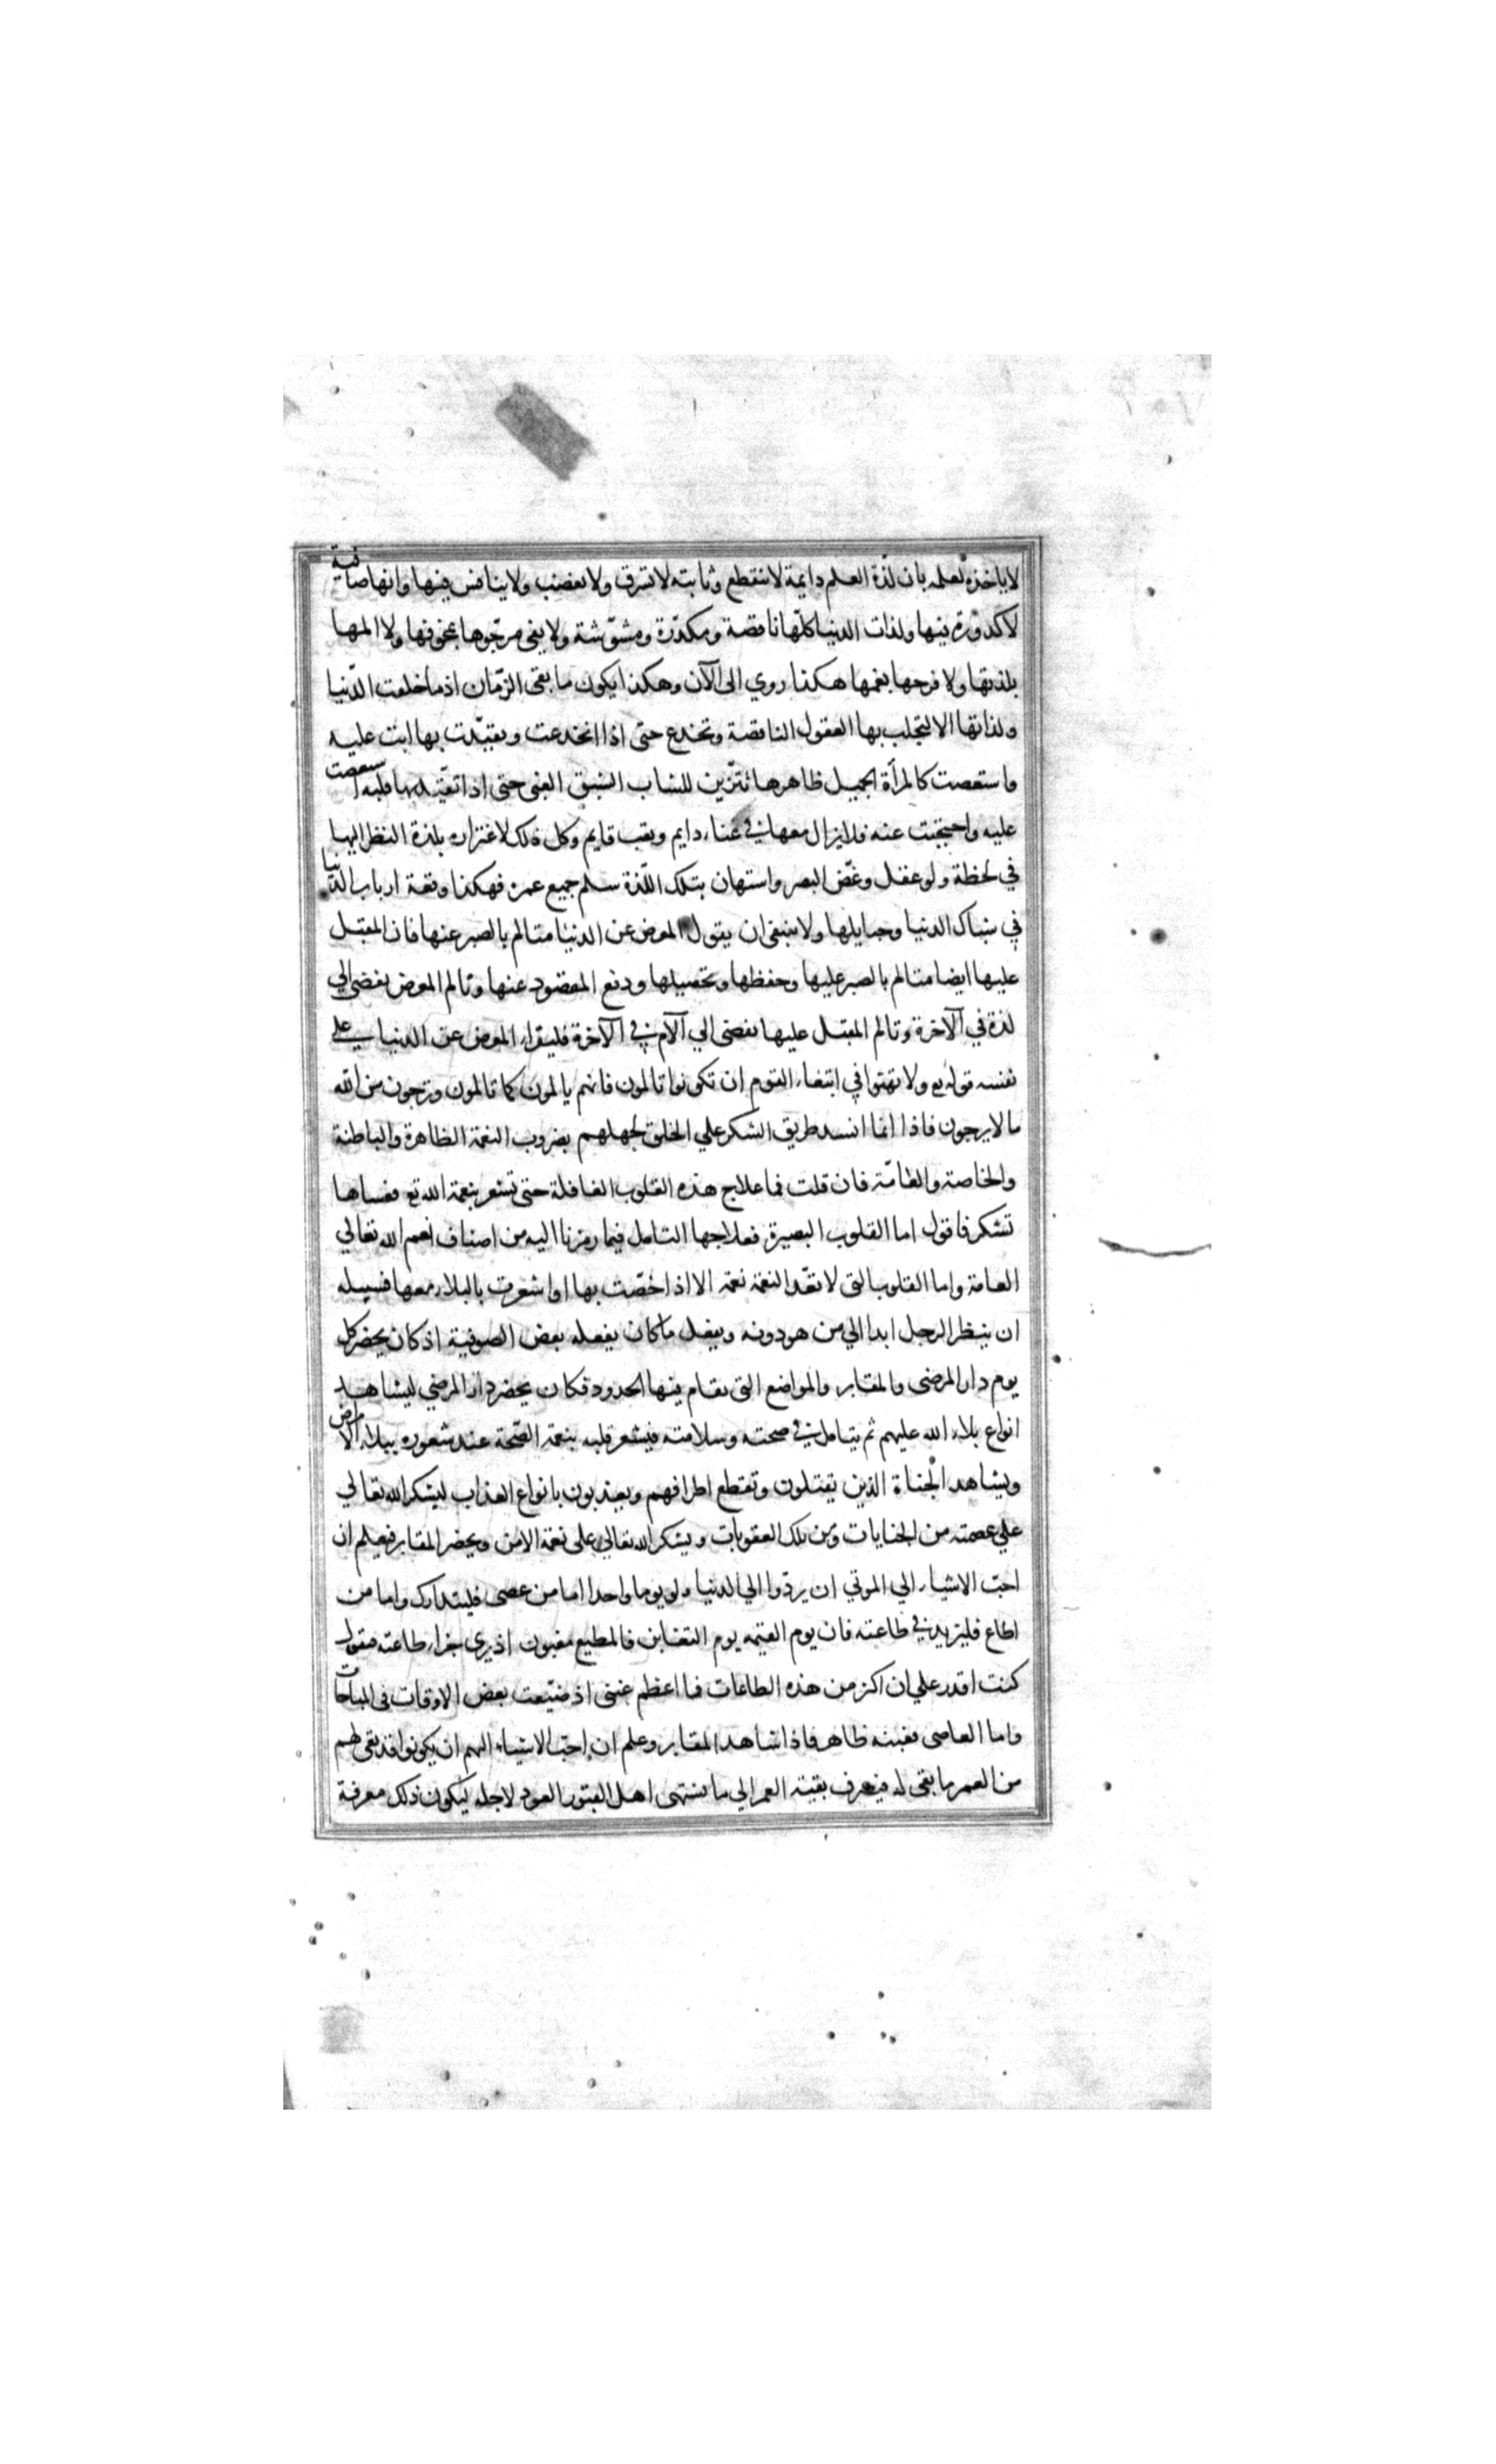 لا ياخذه لعلمه بان لذة العلم دايمة لا تنقطع وثابته لا تسرق ولا تغصب ولا ينافس فيها وانها صافية
لا كدورة فيها ولذات الدنيا كلها ناقصة ومكدرة ومشوشة ولا يفى مرجوها بمخوفها ولا المها
بلذتها ولا فرحها بغمها هكذا روي الى الآن وهكذا يكون ما بقى الزمان اذ ما خلقت الدنيا
ولذاتها الا لتجلب بها العقول الناقصة وتخدع حتى اذا انخدعت وتقيدت بها ابت عليه
واستعصت كالمرأة الجميل ظاهرها تتزين للشاب الشبق الغنى حتى اذا تقيد بها قلبه استعصت
عليه واحتجبت عنه فلا يزال معها في عناء دايم وتعب قايم وكل ذلك لاغتراره بلذة النظر اليها
في لحظة ولو عقل وغض البصر واستهان بتلك اللذة سلم جميع عمره فهكذا وقعة ارباب الدنيا
في شباك الدنيا وحبايلها ولا ينبغى ان يقول المعرض عن الدنيا متالم بالصبر عنها فان المقبل
عليها ايضا متالم بالصبر عليها وحفظها وتحصيلها ودفع اللصوص عنها وتالم المعرض يفضى الي
لذة في الآخرة وتالم المقبل عليها يفضى الي الآلام في الآخرة فليقراء المعرض عن الدنيا على
نفسه قوله تع ولا تهنوا في ابتغاء القوم ان تكونوا تالمون فانهم يالمون كما تالمون وترجون من الله
ما لا يرجون فاذا انما انسد طريق الشكر علي الخلق لجهلهم بضروب النعمة الظاهرة والباطنة
والخاصة والعامّة فان قلت فما علاج هذه القلوب الغافلة حتى تشعر بنعمة الله تع فعساها
تشكر فاقول اما القلوب البصيرة فعلاجها التامل فيما رمزنا اليه من اصناف نعم الله تعالي
العامة واما القلوب التى لا تعّد النعمة نعمة الا اذا خصّت بها او اشعرت بالبلاء معها فسبيله
ان ينظر الرجل ابدا الي من هو دونه ويفعل ما كان يفعله بعض الصوفية اذ كان يحضر كل
يوم دار المرضى والمقابر والمواضع التى تقام فيها الحدود فكان يحضر دار المرضي ليشاهد
انواع بلاء الله عليهم ثم يتامل في صحته وسلامته فيشعر قلبه بنعمة الصّحة عند شعوره ببلاء الامراض
ويشاهد الجناة الذين يقتلون وتقطع اطرافهم ويعذبون بانواع العذاب ليشكر الله تعالي
علي عصمته من الجنايات ومن تلك العقوبات ويشكر الله تعالي على نعمة الامن ويحضر المقابر فيعلم ان
احبّ الاشياء الي الموتي ان يردّوا الي الدنيا ولو يوما واحدا اما من عصى فليتدارك واما من
اطاع فليزيد في طاعته فان يوم القيمه يوم التغابن فالمطيع مغبون اذ يرى جزاء طاعته فيقول
كنت اقدر علي ان اكثر من هذه الطاعات فما اعظم غبنى اذ ضيّعت بعض الاوقات فى المباحات
واما العاصى فغبنه ظاهر فاذا شاهد المقابر وعلم ان احبّ الاشياء اليهم ان يكونوا قد بقى لهم
من العمر ما بقى له فيصرف بقية العمر الي ما يشتهى اهل القبور العود لاجله ليكون ذلك معرفة